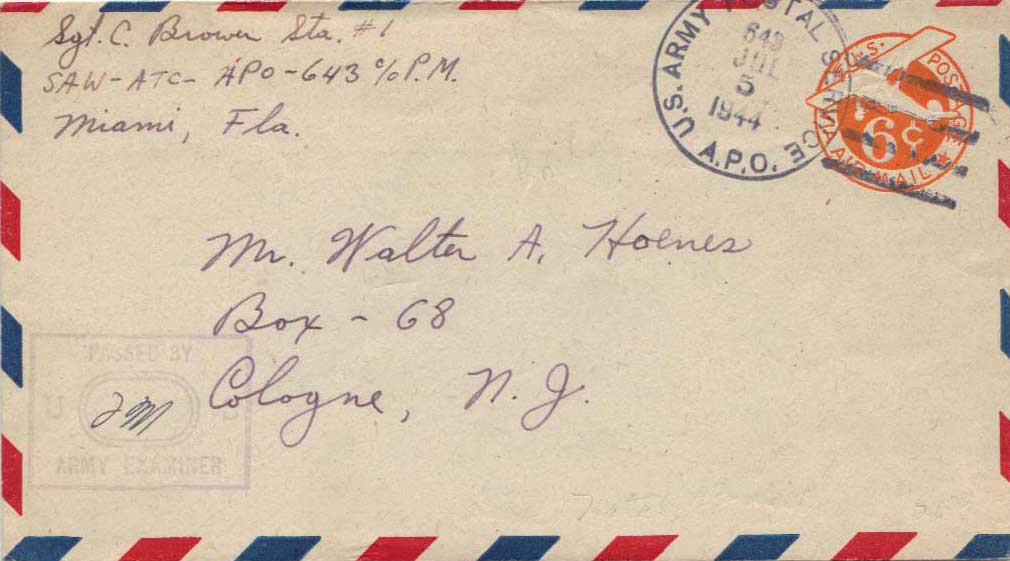 Sgt. C. Brower Sta. #1
SAW-ATC- APO-643 c/o P.M.
Miami, Fla.
U.S. ARMY POSTAL SERVICE
A.P.O.
643
JUL
5
1944
U.S. POSTAGE
6¢
VIA AIR MAIL
Mr. Walter A. Hoenes
Box - 68
Cologne, N. J.
PASSED BY
U S
ARMY EXAMINER